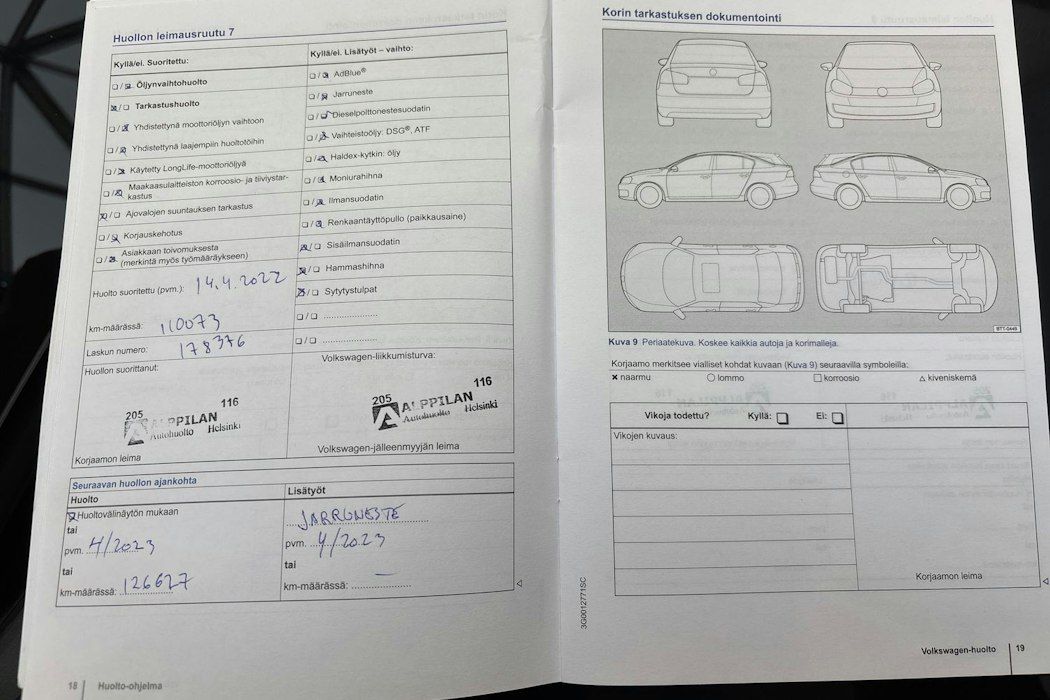 Huollon leimausruutu 7
Kyllä/ei. Suoritettu:
☐ / ☒ Öljynvaihtohuolto
☒ / ☐ Tarkastushuolto
☐ / ☒ Yhdistettynä moottoriöljyn vaihtoon
☐ / ☒ Yhdistettynä laajempiin huoltotöihin
☐ / ☒ Käytetty LongLife-moottoriöljyä
☐ / ☒ Maakaasulaitteiston korroosio- ja tiiviystar-
kastus
☒ / ☐ Ajovalojen suuntauksen tarkastus
☐ / ☒ Korjauskehotus
☐ / ☒ Asiakkaan toivomuksesta
(merkintä myös työmääräykseen)
Huolto suoritettu (pvm.): 14.4.2022
km-määrässä: 110073
Laskun numero: 178376
Huollon suorittanut:
205 116
ALPPILAN
Autohuolto Helsinki
Korjaamon leima
Kyllä/ei. Lisätyöt – vaihto:
☐ / ☒ AdBlue®
☐ / ☒ Jarruneste
☐ / ☒ Dieselpolttonestesuodatin
☐ / ☒ Vaihteistoöljy: DSG®, ATF
☐ / ☒ Haldex-kytkin: öljy
☐ / ☒ Moniurahihna
☐ / ☒ Ilmansuodatin
☐ / ☒ Renkaantäyttöpullo (paikkausaine)
☒ / ☐ Sisäilmansuodatin
☒ / ☐ Hammashihna
☒ / ☐ Sytytystulpat
☐ / ☐ ....................
☐ / ☐ ....................
Volkswagen-liikkumisturva:
205 116
ALPPILAN
Autohuolto Helsinki
Volkswagen-jälleenmyyjän leima
Seuraavan huollon ajankohta
Huolto
☒ Huoltovälinäytön mukaan
tai
pvm. 4/2023
tai
km-määrässä: 126627
Lisätyöt
JARRUNESTE
pvm. 4/2023
tai
km-määrässä: —
18 Huolto-ohjelma
Korin tarkastuksen dokumentointi
BTT-0449
Kuva 9 Periaatekuva. Koskee kaikkia autoja ja korimalleja.
Korjaamo merkitsee vialliset kohdat kuvaan (Kuva 9) seuraavilla symboleilla:
× naarmu ○ lommo □ korroosio △ kiveniskemä
Vikoja todettu? Kyllä: ☐ Ei: ☐
Vikojen kuvaus:
Korjaamon leima
3G0012771SC
Volkswagen-huolto 19